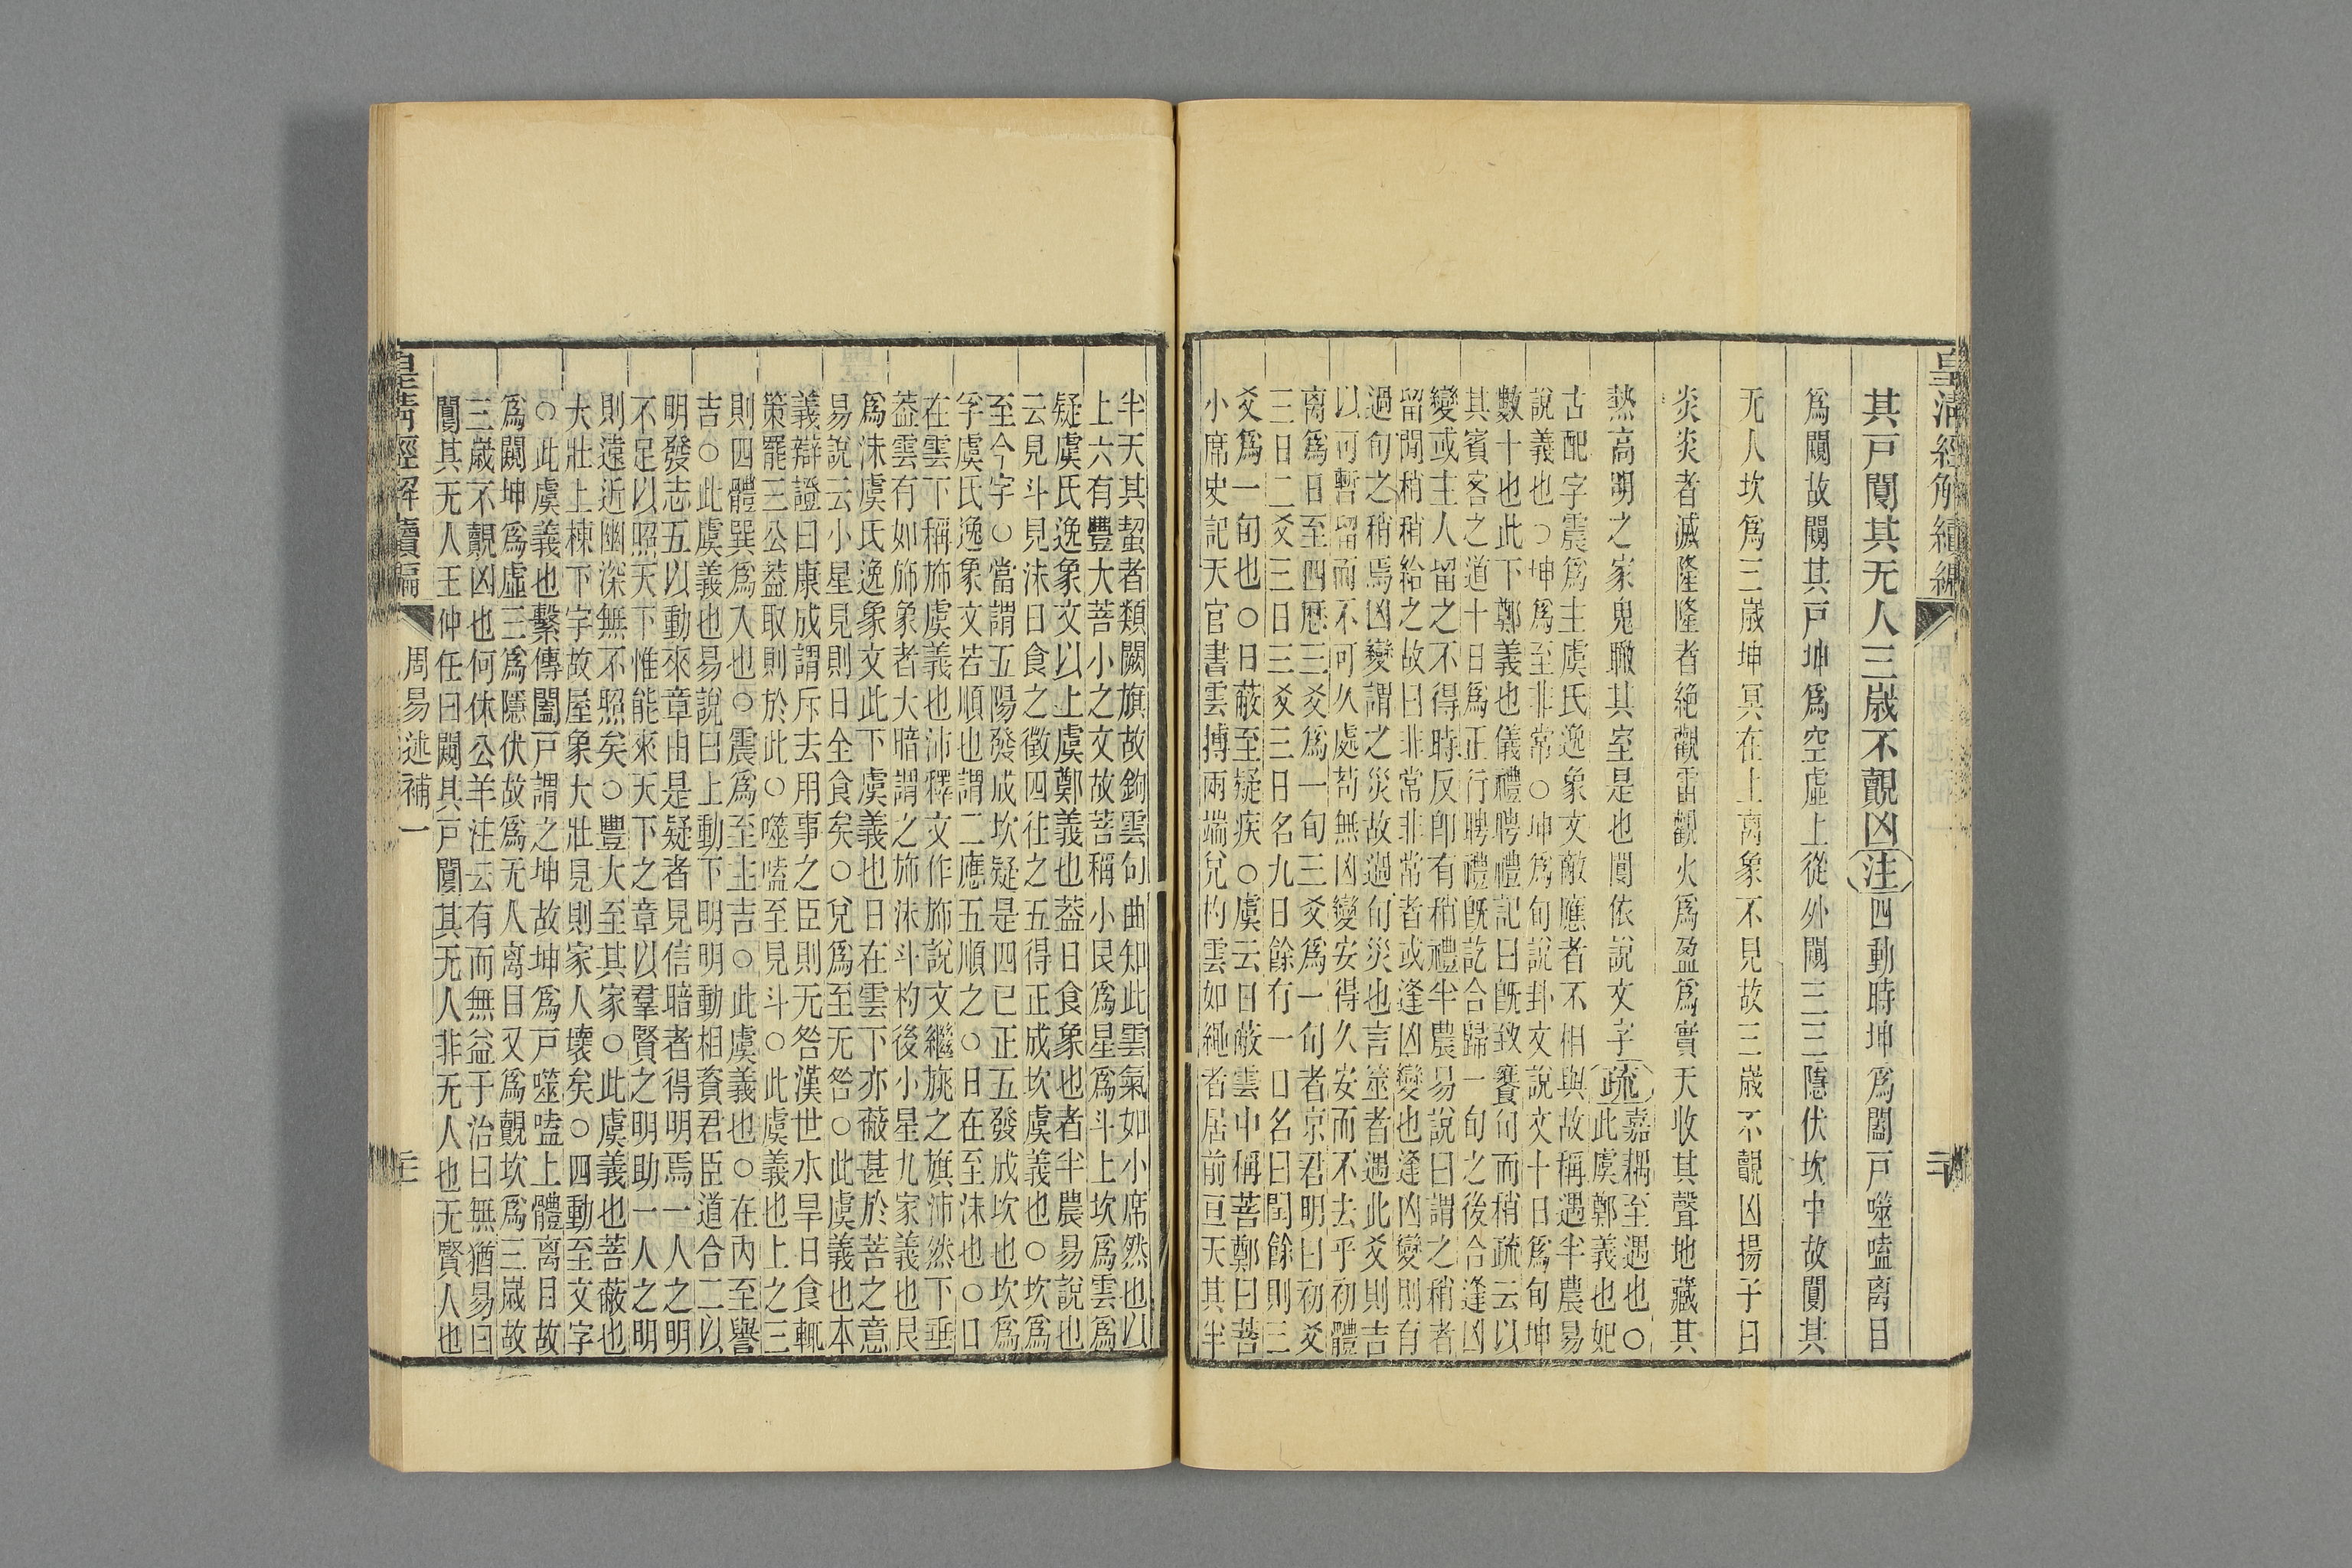 皇清經解續編
其戸闃其无人三歲不覿凶注四動時坤爲闔戸噬嗑离目
爲闚故闚其戸坤爲空虛上從外闚三三隱伏坎中故闃其
无人坎爲三歲坤冥在上离象不見故三歲不覿凶揚子曰
炎炎者滅隆隆者絶觀雷觀火爲盈爲實天收其聲地藏其
熱高明之家鬼瞰其室是也闃依說文字疏
嘉耦至遇也○
此虞鄭義也妃
古配字震爲主虞氏逸象文敵應者不相與故稱遇半農易
說義也○坤爲至非常○坤爲旬說卦文說文十日爲旬坤
數十也此下鄭義也儀禮聘禮記曰旣致饔旬而稍疏云以
其賓客之道十日爲正行聘禮旣訖合歸一旬之後合逢凶
變或主人留之不得時反卽有稍禮半農易說曰謂之稍者
留閒稍稍給之故曰非常非常者或逢凶變也逢凶變則有
過旬之稍焉凶變謂之災故過旬災也言筮者遇此爻則吉
以可暫留而不可久處苟無凶變安得久安而不去乎初體
离爲日至四厯三爻爲一旬三爻爲一旬者京君明曰初爻
三日二爻三日三爻三日名九日餘有一日名曰閏餘則三
爻爲一旬也○日蔽至疑疾○虞云日蔽雲中稱菩鄭曰菩
小席史記天官書雲摶兩端兌杓雲如繩者居前亘天其半
半天其蛪者類闕旗故鉤雲句曲知此雲氣如小席然也以
上六有豐大菩小之文故菩稱小艮爲星爲斗上坎爲雲爲
疑虞氏逸象文以上虞鄭義也葢日食象也者半農易說也
云見斗見沬日食之徵四往之五得正成坎虞義也○坎爲
至今字○當謂五陽發成坎疑是四已正五發成坎也坎爲
孚虞氏逸象文若順也謂二應五順之○日在至沬也○日
在雲下稱斾虞義也沛釋文作斾說文繼旐之旗沛然下垂
葢雲有如斾象者大暗謂之斾沬斗杓後小星九家義也艮
爲沬虞氏逸象文此下虞義也日在雲下亦蔽甚於菩之意
易說云小星見則日全食矣○兌爲至无咎○此虞義也本
義辯證曰康成謂斥去用事之臣則无咎漢世水旱日食輒
策罷三公葢取則於此○噬嗑至見斗○此虞義也上之三
則四體巽爲入也○震爲至主吉○此虞義也○在內至譽
吉○此虞義也易說曰上動下明明動相資君臣道合二以
明發志五以動來章由是疑者見信暗者得明焉一人之明
不足以照天下惟能來天下之章以羣賢之明助一人之明
則遠近幽深無不照矣○豐大至其家○此虞義也菩蔽也
大壯上棟下宇故屋象大壯見則家人壞矣○四動至文字
○此虞義也繫傳闔戸謂之坤故坤爲戸噬嗑上體离目故
爲闚坤爲虛三爲隱伏故爲无人离目又爲覿坎爲三歲故
三歲不覿凶也何休公羊注云有而無益于治曰無猶易曰
闃其无人王仲任曰闚其戸闃其无人非无人也无賢人也
皇清經解續編
周易述補一
三